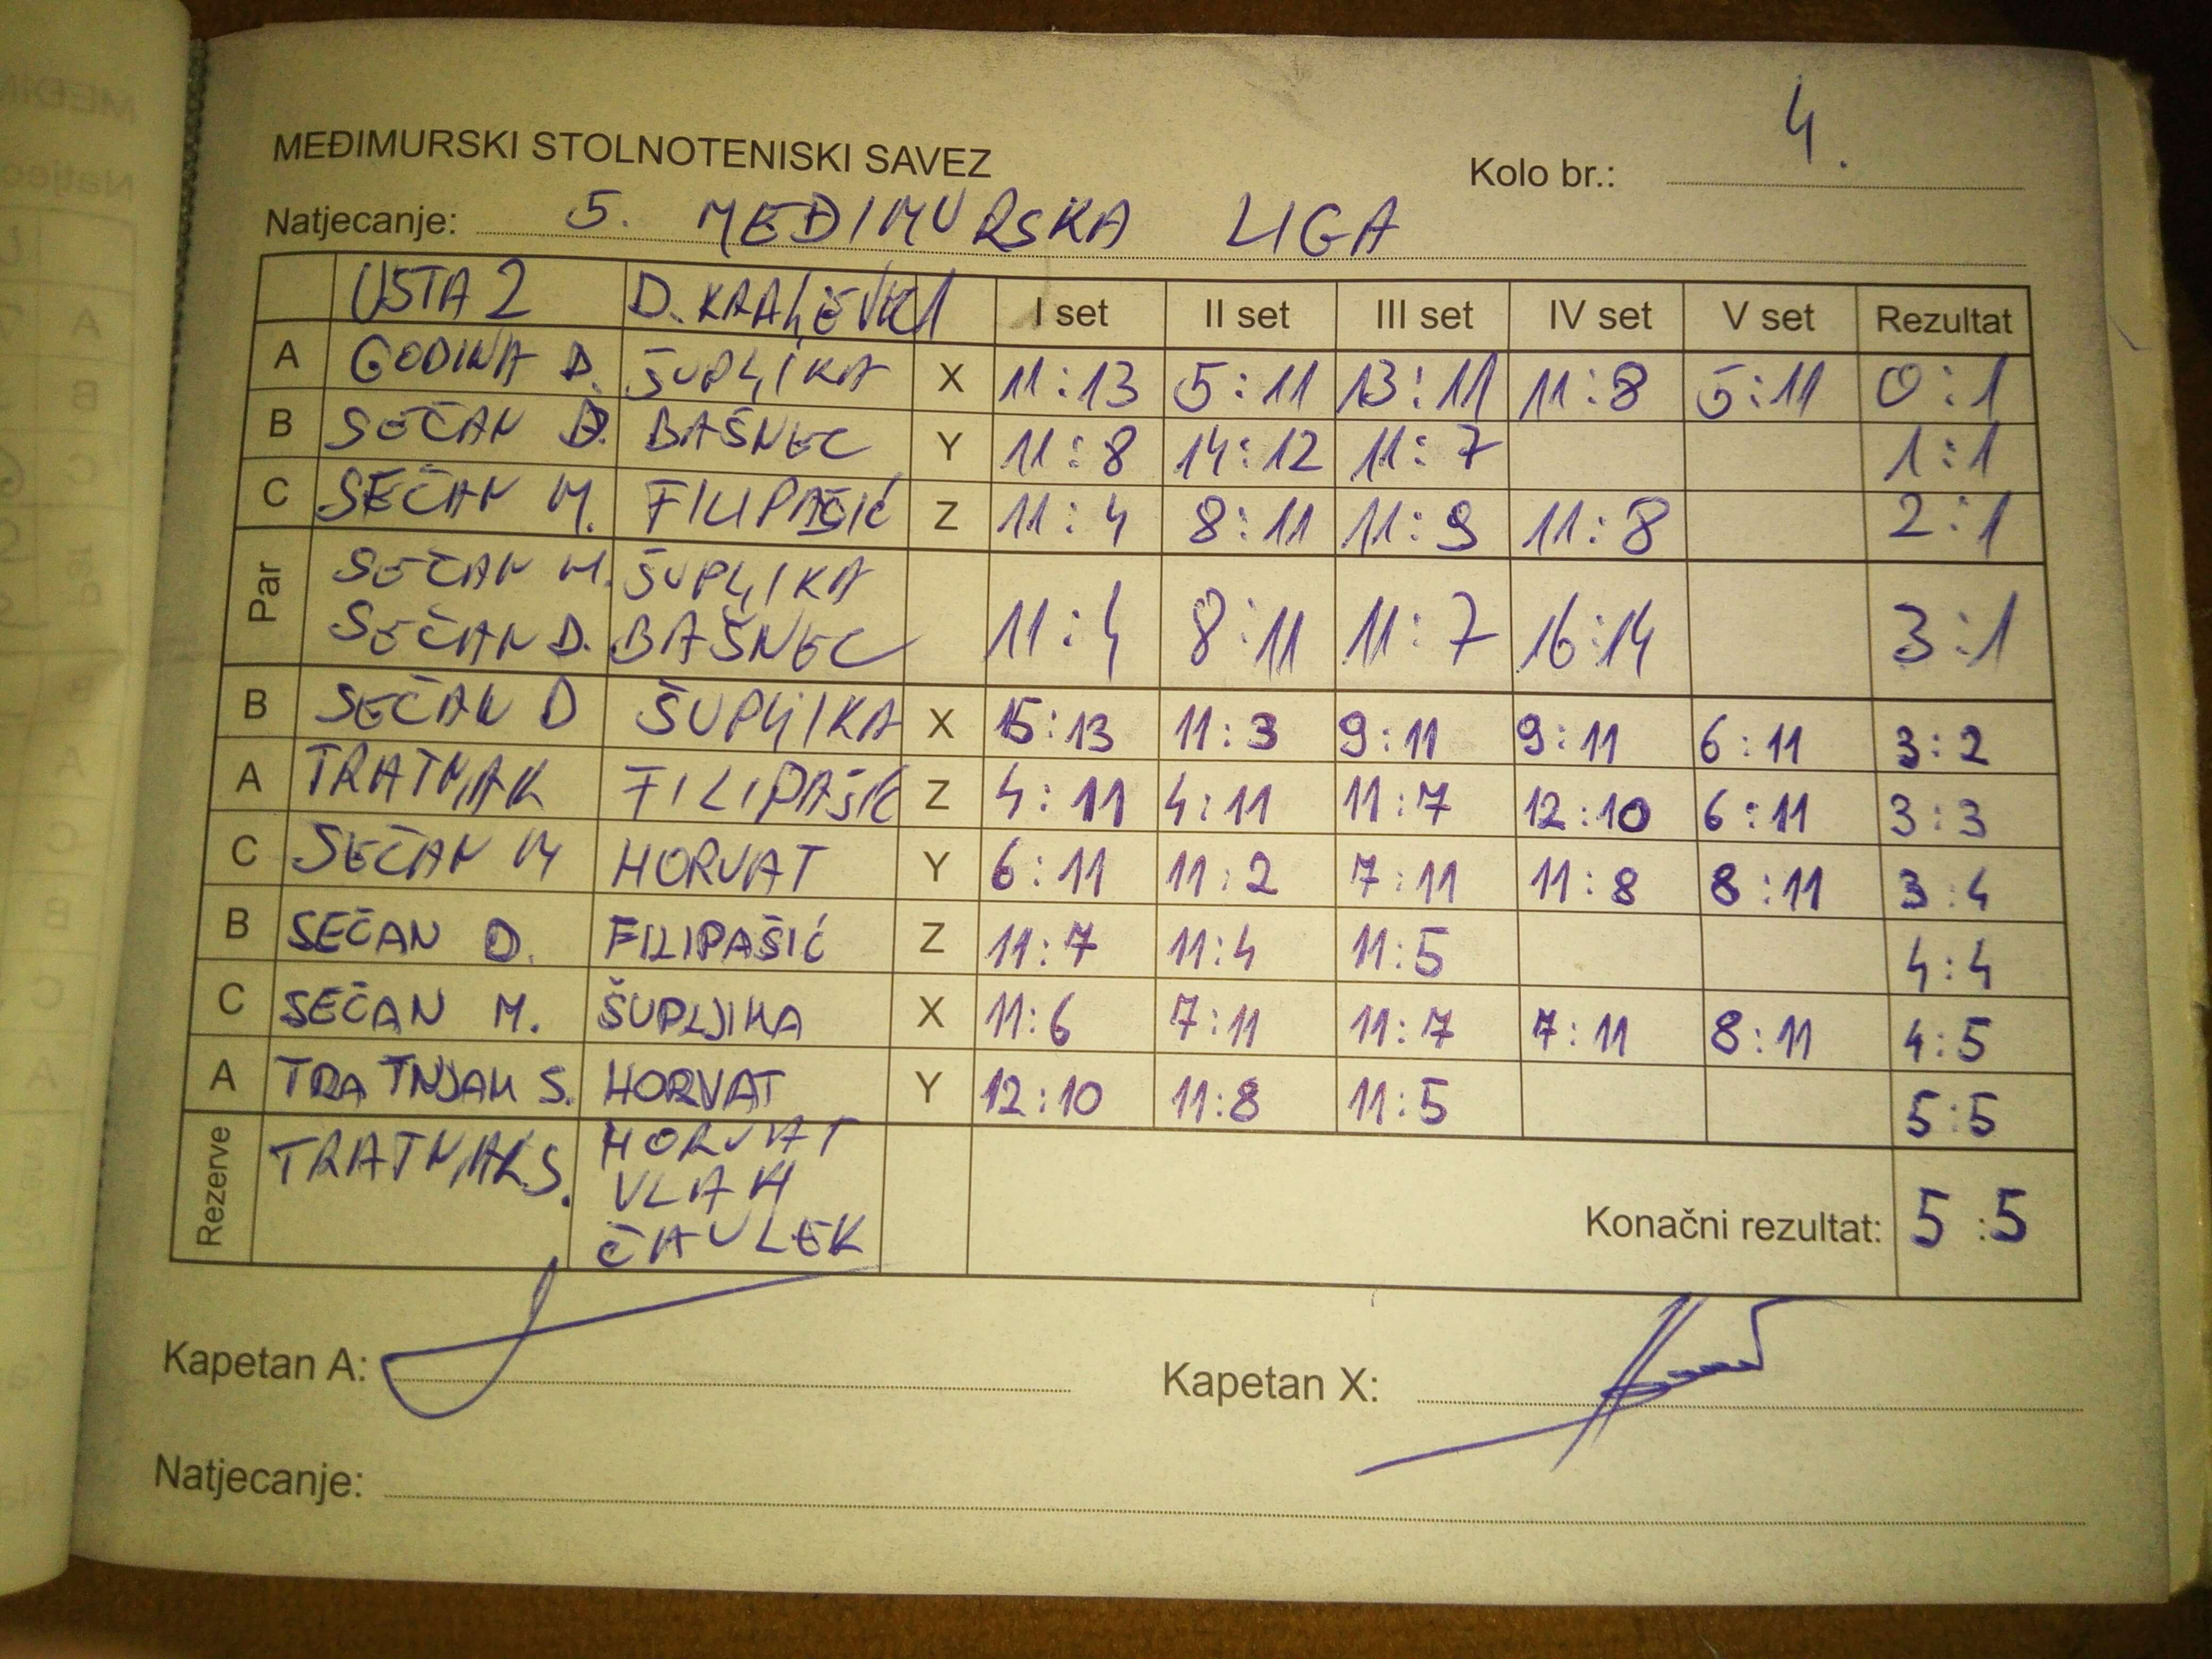 MEĐIMURSKI STOLNOTENISKI SAVEZ
Kolo br.: 4.
Natjecanje: 5. MEĐIMURSKA LIGA
USTA 2 D. KRALJEVEC 1 I set II set III set IV set V set Rezultat
A GODINA D. ŠUPLJIKA X 11:13 5:11 13:11 11:8 5:11 0:1
B SEČAN D. BAŠNEC Y 11:8 14:12 11:7 1:1
C SEČAN M. FILIPAŠIĆ Z 11:4 8:11 11:9 11:8 2:1
Par SEČAN M. ŠUPLJIKA
SEČAN D. BAŠNEC 11:4 8:11 11:7 16:14 3:1
B SEČAN D ŠUPLJIKA X 15:13 11:3 9:11 9:11 6:11 3:2
A TRATNJAK FILIPAŠIĆ Z 4:11 4:11 11:7 12:10 6:11 3:3
C SEČAN M HORVAT Y 6:11 11:2 7:11 11:8 8:11 3:4
B SEČAN D. FILIPAŠIĆ Z 11:7 11:4 11:5 4:4
C SEČAN M. ŠUPLJIKA X 11:6 7:11 11:7 7:11 8:11 4:5
A TRATNJAK S. HORVAT Y 12:10 11:8 11:5 5:5
Rezerve TRATNJAK S. HORVAT
VLAH
ČAVLEK
Konačni rezultat: 5:5
Kapetan A:
Kapetan X:
Natjecanje: